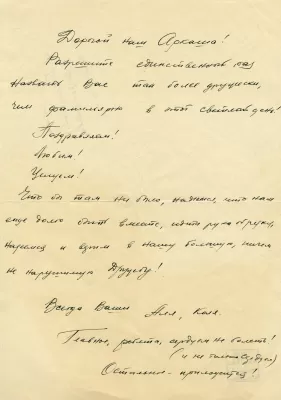 Дорогой наш Аркаша!
Разрешите единственный раз
назвать Вас так более дружески,
чем фамильярно в этот светлый день!
Поздравляем!
Любим!
Целуем!
Что бы там ни было, надеемся, что нам
еще долго быть вместе, идти рука об руку,
и верить в нашу большую, ничем
не нарушимую Дружбу!
Всегда Ваши Аля, Коля.
Главное, ребята, сердцем не болеть!
(и не только сердцем)
Остальное - приложится!